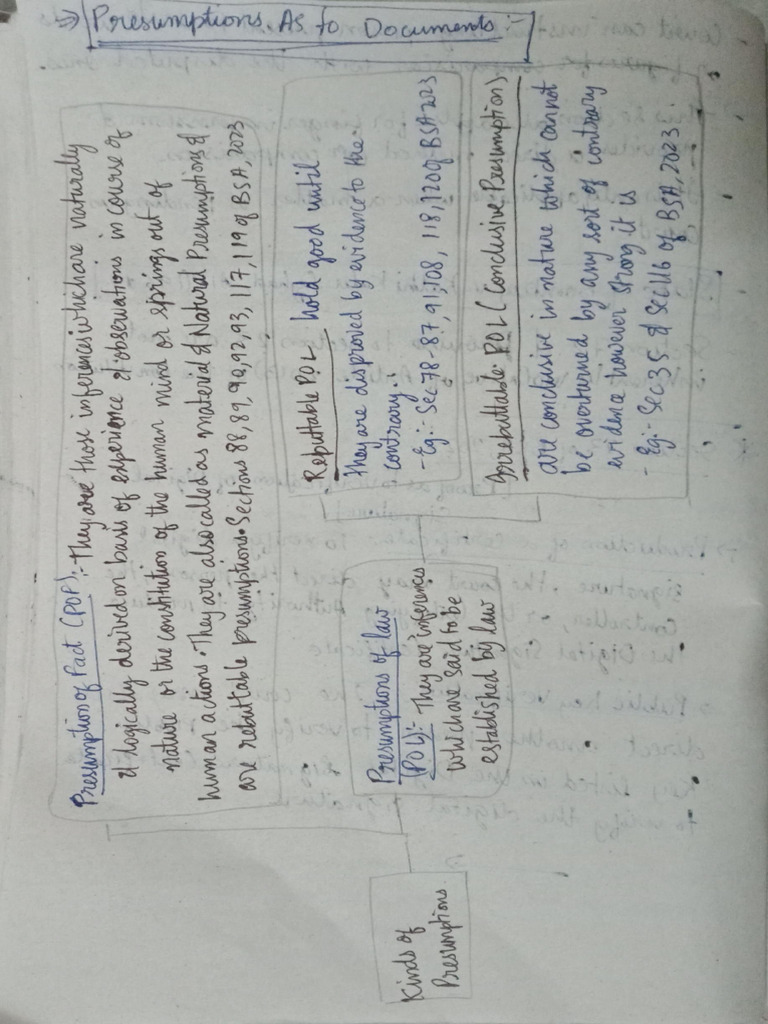 => Presumptions As to Documents :-
Kinds of
Presumptions
Presumption of Fact (POF) :- They are those inferences which are naturally
& logically derived on basis of experience & observations in course of
nature or the constitution of the human mind or springs out of
human actions. They are also called as material & Natural Presumptions &
are rebuttable presumptions. Sections 88, 89, 90, 92, 93, 117, 119 of BSA, 2023
Presumptions of law
(POL) :- They are inferences
which are said to be
established by law
Rebuttable POL hold good until
they are disproved by evidence to the
contrary.
- Eg:- Sec 78-87, 91, 108, 118, 120 of BSA 2023
Irrebuttable POL (Conclusive Presumptions)
are conclusive in nature which cannot
be overturned by any sort of contrary
evidence however strong it is
- Eg:- Sec 35 & Sec 116 of BSA, 2023